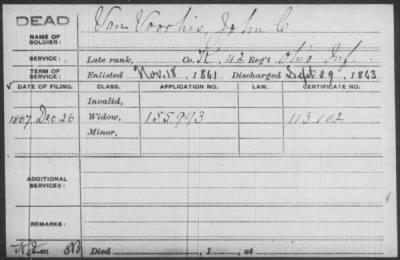 DEAD
NAME OF SOLDIER: Van Voorhis, John C
SERVICE: Late rank, Co. K, 42 Reg't Ohio Inf.
TERM OF SERVICE: Enlisted Nov. 18, 1861 Discharged Sept 29, 1863
DATE OF FILING. CLASS. APPLICATION NO. LAW. CERTIFICATE NO.
Invalid,
1867, Dec 26 Widow, 155993 113102
Minor,
ADDITIONAL SERVICES:
REMARKS:
Died , 1 , at